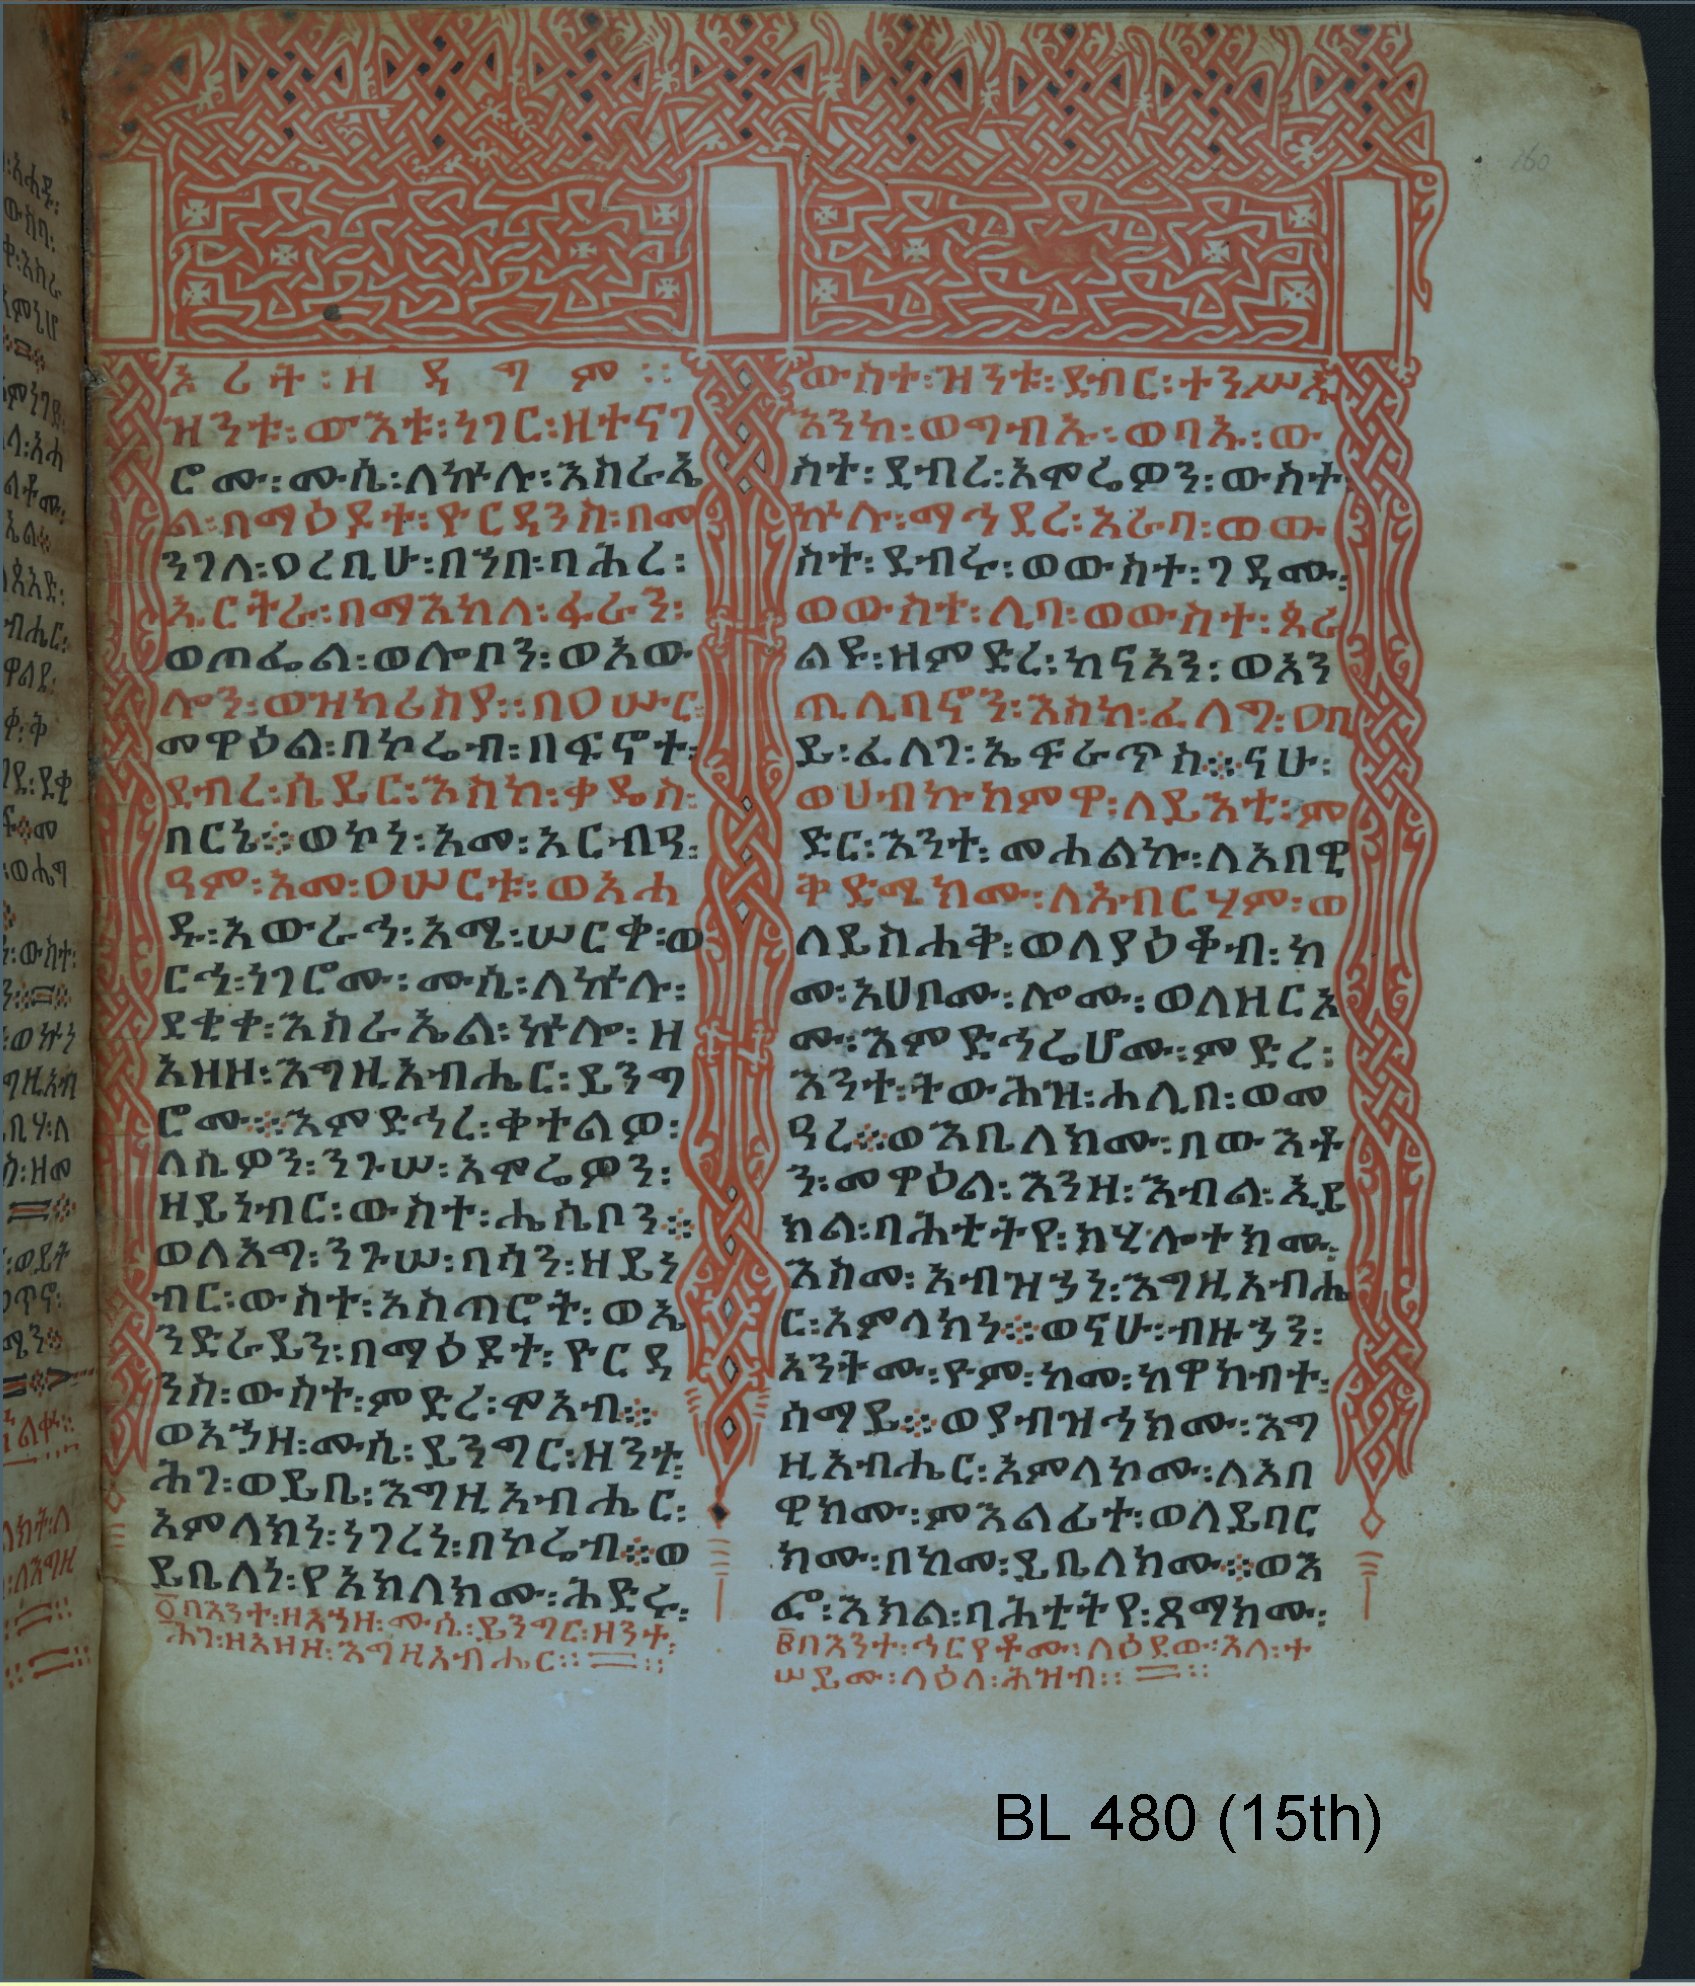 ኦሪት፡ዘዳግም፡፡
ዝንቱ፡ውእቱ፡ነገር፡ዘተናገ
ሮሙ፡ሙሴ፡ለኵሉ፡እስራኤ
ል፡በማዕዶተ፡ዮርዳንስ፡በመ
ንገለ፡ዐረቢሁ፡በኀበ፡ባሕረ፡
ኤርትራ፡በማእከለ፡ፋራን፡
ወጦፌል፡ወሎቦን፡ወአው
ሎን፡ወዝክሪስያ፡፡በዐሡር
መዋዕል፡በኮሬብ፡በፍኖተ፡
ደብረ፡ሴይር፡እስከ፡ቃዴስ፡
በርኔ፡፡ወኮነ፡አመ፡አርብዓ፡
ዓም፡አመ፡ዐሠርቱ፡ወአሐ
ዱ፡አውራኅ፡አሚ፡ሠርቀ፡ወ
ርኅ፡ነገሮሙ፡ሙሴ፡ለኵሉ፡
ደቂቀ፡እስራኤል፡ኵሎ፡ዘ
አዘዘ፡እግዚአብሔር፡ይንግ
ሮሙ፡፡እምድኅረ፡ቀተልዎ፡
ለሴዎን፡ንጉሠ፡አሞሬዎን፡
ዘይነብር፡ውስተ፡ሔሴቦን፡፡
ወለአግ፡ንጉሠ፡ባሳን፡ዘይነ
ብር፡ውስተ፡አስጣሮት፡ወኤ
ንድራይን፡በማዕዶተ፡ዮርዳ
ንስ፡ውስተ፡ምድረ፡ሞአብ፡፡
ወአኀዘ፡ሙሴ፡ይንግር፡ዘንተ፡
ሕገ፡ወይቤ፡እግዚአብሔር፡
አምላክነ፡ነገረነ፡በኮሬብ፡፡ወ
ይቤለነ፡የአክለክሙ፡ሕድሩ፡
፩በእንተ፡ዘአኀዘ፡ሙሴ፡ይንግር፡ዘንተ፡
ሕገ፡ዘአዘዘ፡እግዚአብሔር፡፡
ውስተ፡ዝንቱ፡ደብር፡ተንሥኡ
እንከ፡ወግብኡ፡ወባኡ፡ው
ስተ፡ደብረ፡አሞሬዎን፡ውስተ፡
ኵሉ፡ማኅደረ፡አራባ፡ወው
ስተ፡ደብሩ፡ወውስተ፡ገዳሙ፡
ወውስተ፡ሊባ፡ወውስተ፡ጳረ
ልዩ፡ዘምድረ፡ከናአን፡ወአን
ጢሊባኖን፡እስከ፡ፈለግ፡ዐቢ
ይ፡ፈለገ፡ኤፍራጥስ፡፡ናሁ፡
ወሀብኩክምዋ፡ለይእቲ፡ም
ድር፡እንተ፡መሐልኩ፡ለአበዊ
ቅድሜክሙ፡ለአብርሃም፡ወ
ለይስሐቅ፡ወለያዕቆብ፡ከ
መ፡አሀቦሙ፡ሎሙ፡ወለዘርኦ
ሙ፡እምድኅሬሆሙ፡ምድረ፡
እንተ፡ትውሕዝ፡ሐሊበ፡ወመ
ዓረ፡፡ወእቤለክሙ፡በውእቶ
ን፡መዋዕል፡እንዘ፡እብል፡ኢይ
ክል፡ባሕቲትየ፡ክሂሎተክሙ፡
እስመ፡አብዝኀነ፡እግዚአብሔ
ር፡አምላክነ፡፡ወናሁ፡ብዙኃን፡
አንትሙ፡ዮም፡ከመ፡ከዋክብተ፡
ሰማይ፡፡ወያብዝኅክሙ፡እግ
ዚአብሔር፡አምላኮሙ፡ለአበ
ዊክሙ፡ምእልፊተ፡ወለይባር
ክሙ፡በከመ፡ይቤለክሙ፡፡ወእ
ፎ፡እክል፡ባሕቲትየ፡ጻማክሙ፡
፪በእንተ፡ኅርየቶሙ፡ለዕደው፡እለ፡ተ
ሠይሙ፡ላዕለ፡ሕዝብ፡፡
BL 480 (15th)